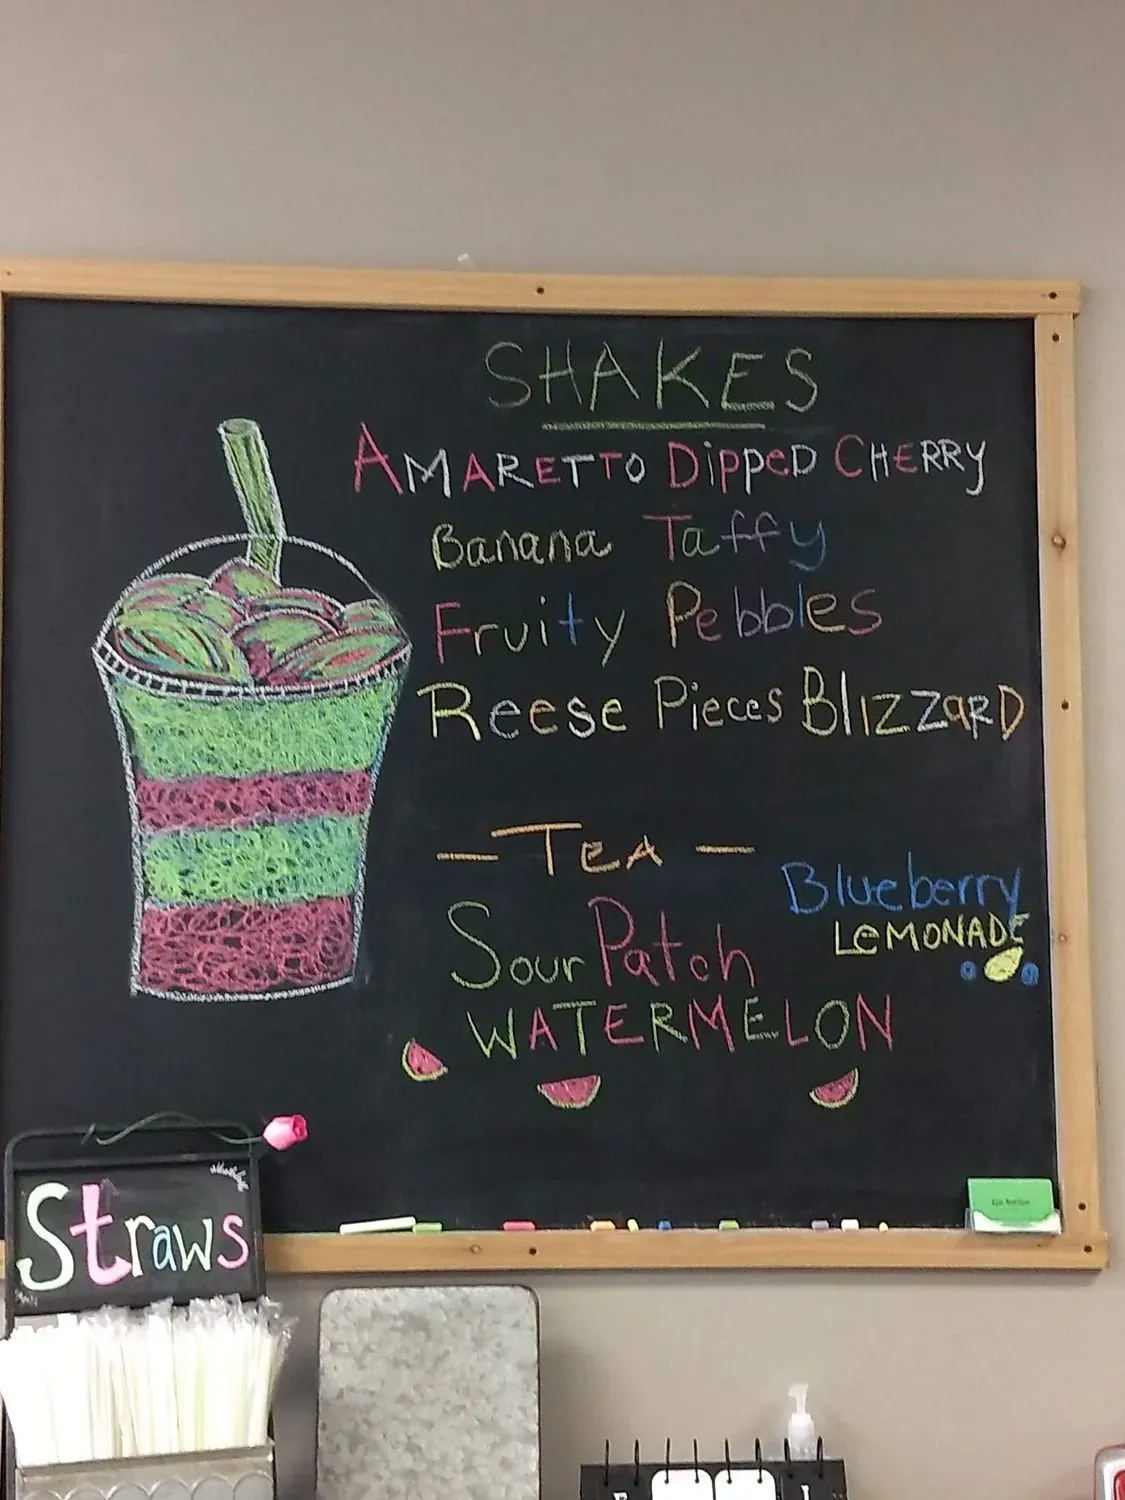 SHAKES
AMARETTO DippeD CHERRY
Banana Taffy
Fruity Pebbles
Reese Pieces BlizzaRD
- TEA -
Blueberry
LeMONADE
Sour Patch
WATERMELON
Straws